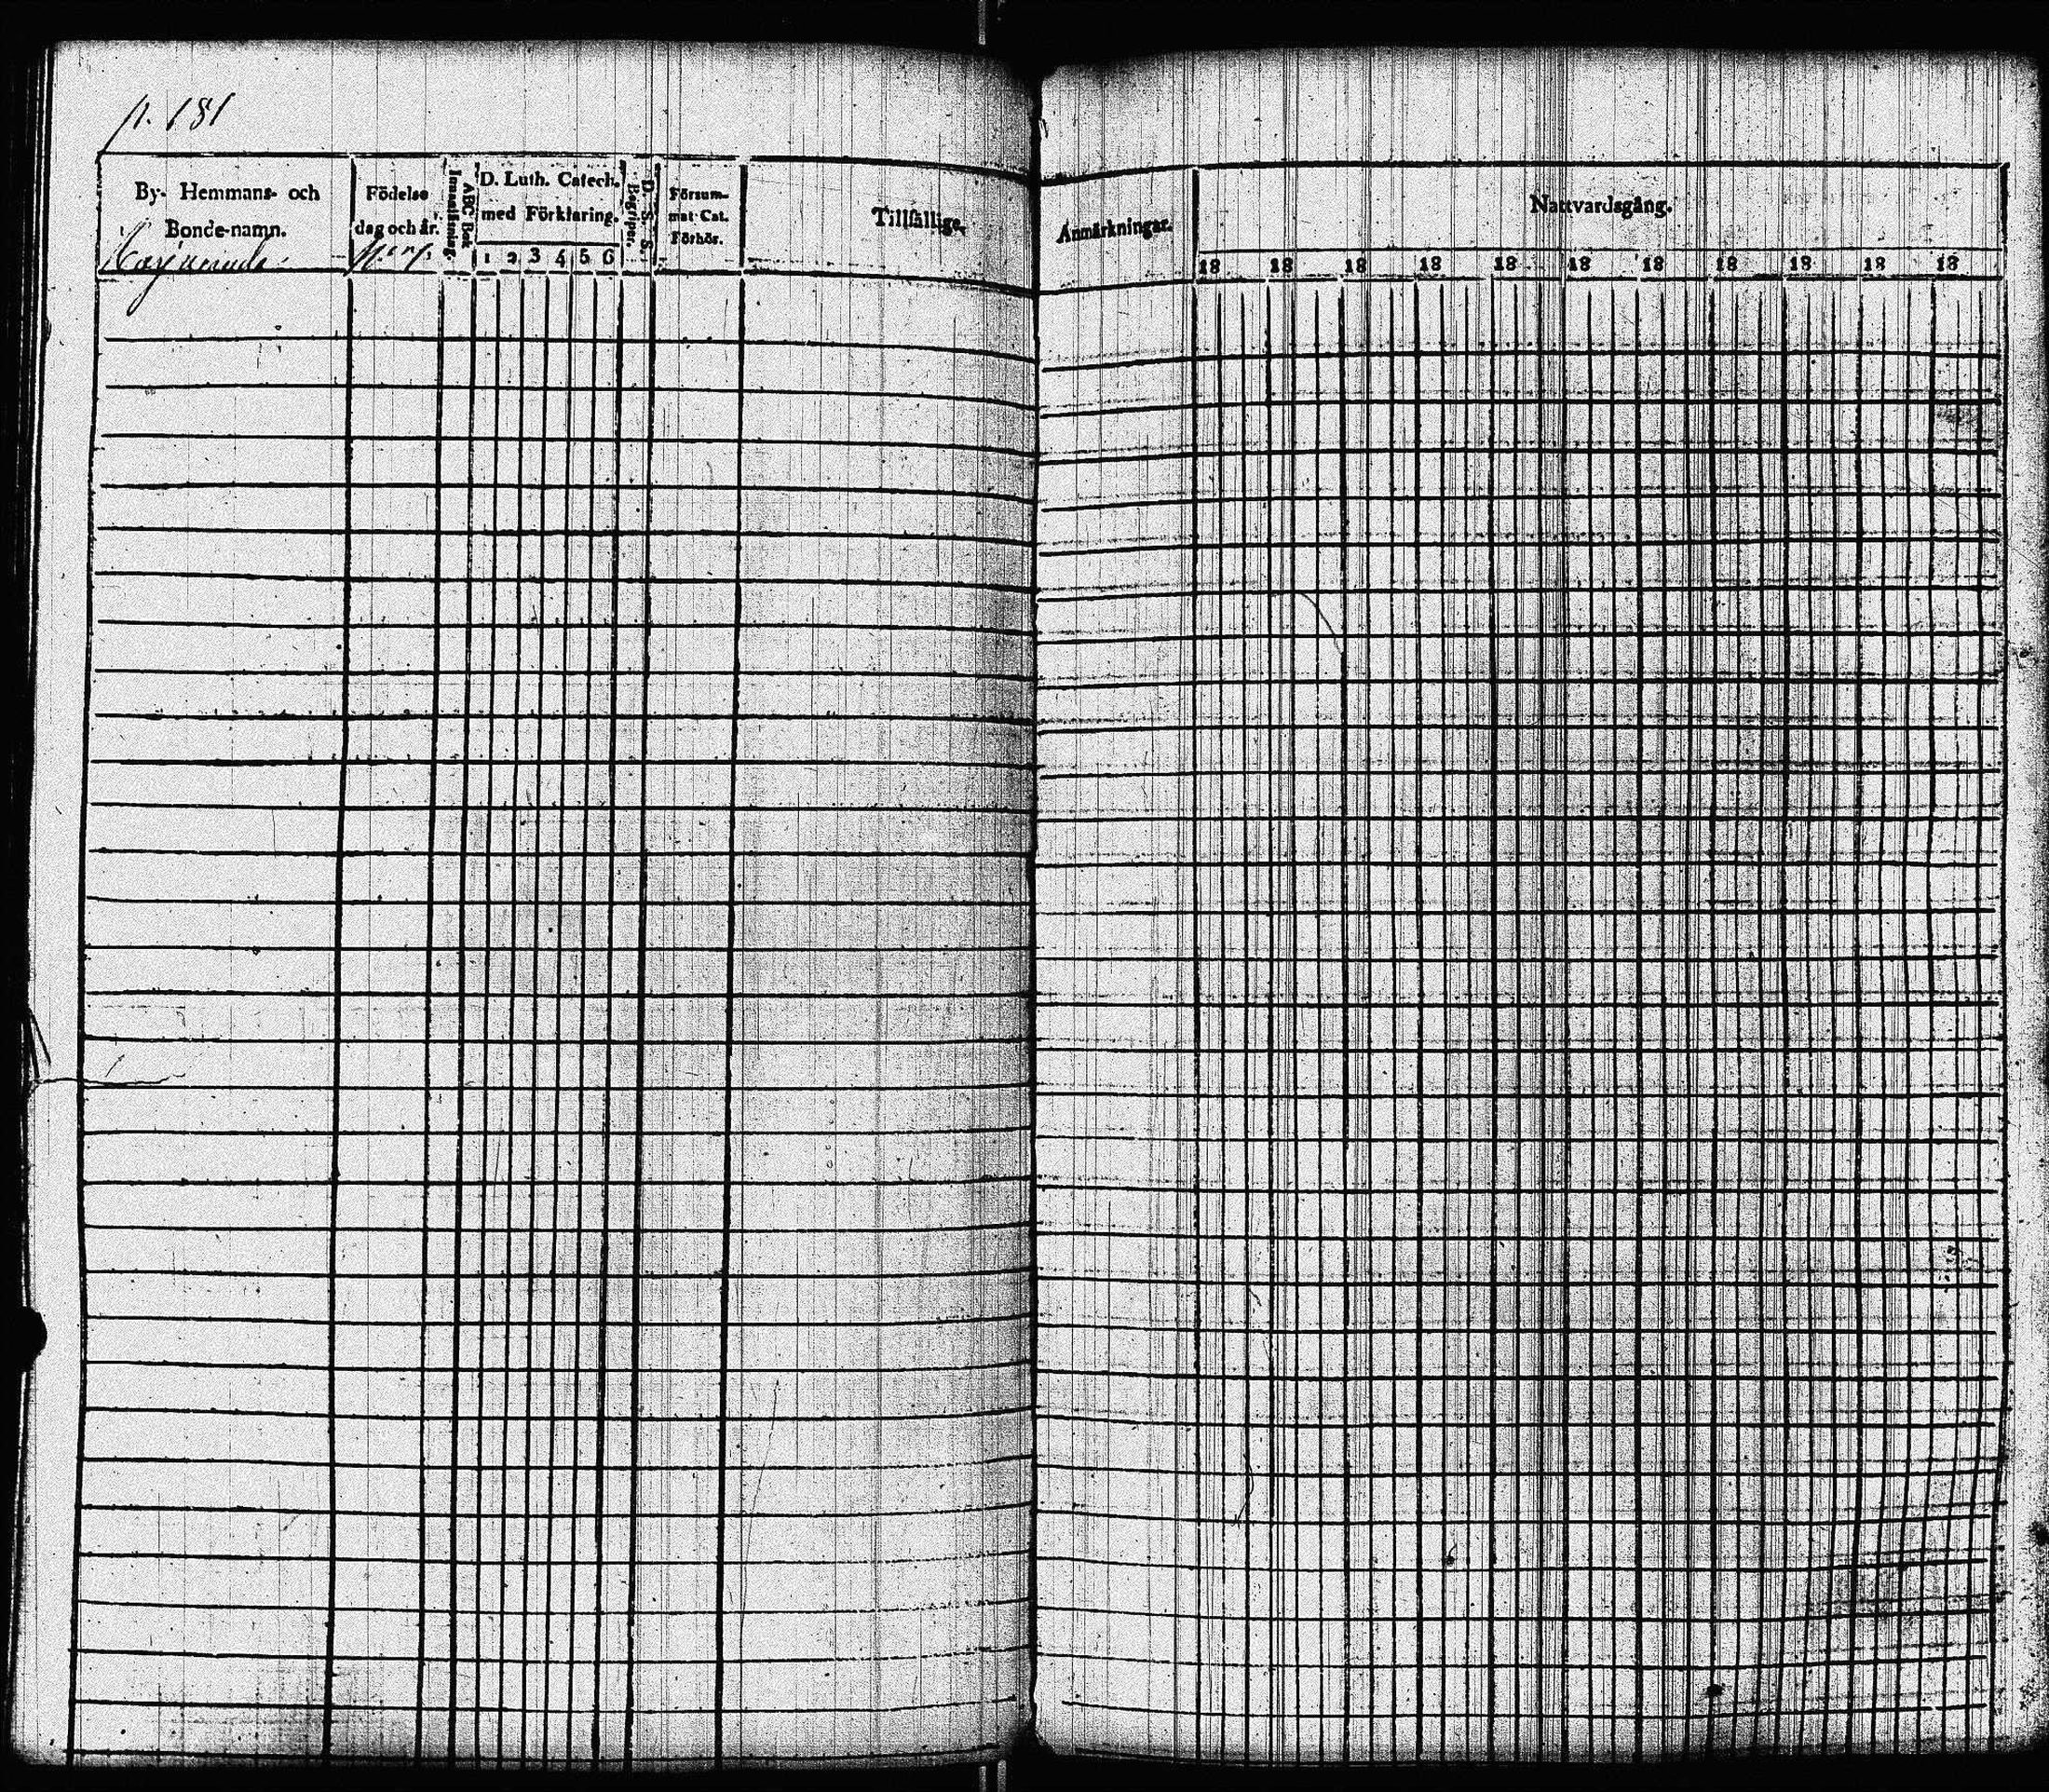 p. 181
By- Hemmans- och
Bonde-namn.
Födelse
dag och år.
ABC Bok
Innanläsning.
D. Luth. Catech.
med Förklaring.
1 2 3 4 5 6
D. S. S.
Begriper.
Försum-
mat Cat.
Förhör.
Tillfällige.
Anmärkningar.
Nattvardsgång.
18 18 18 18 18 18 18 18 18 18 18